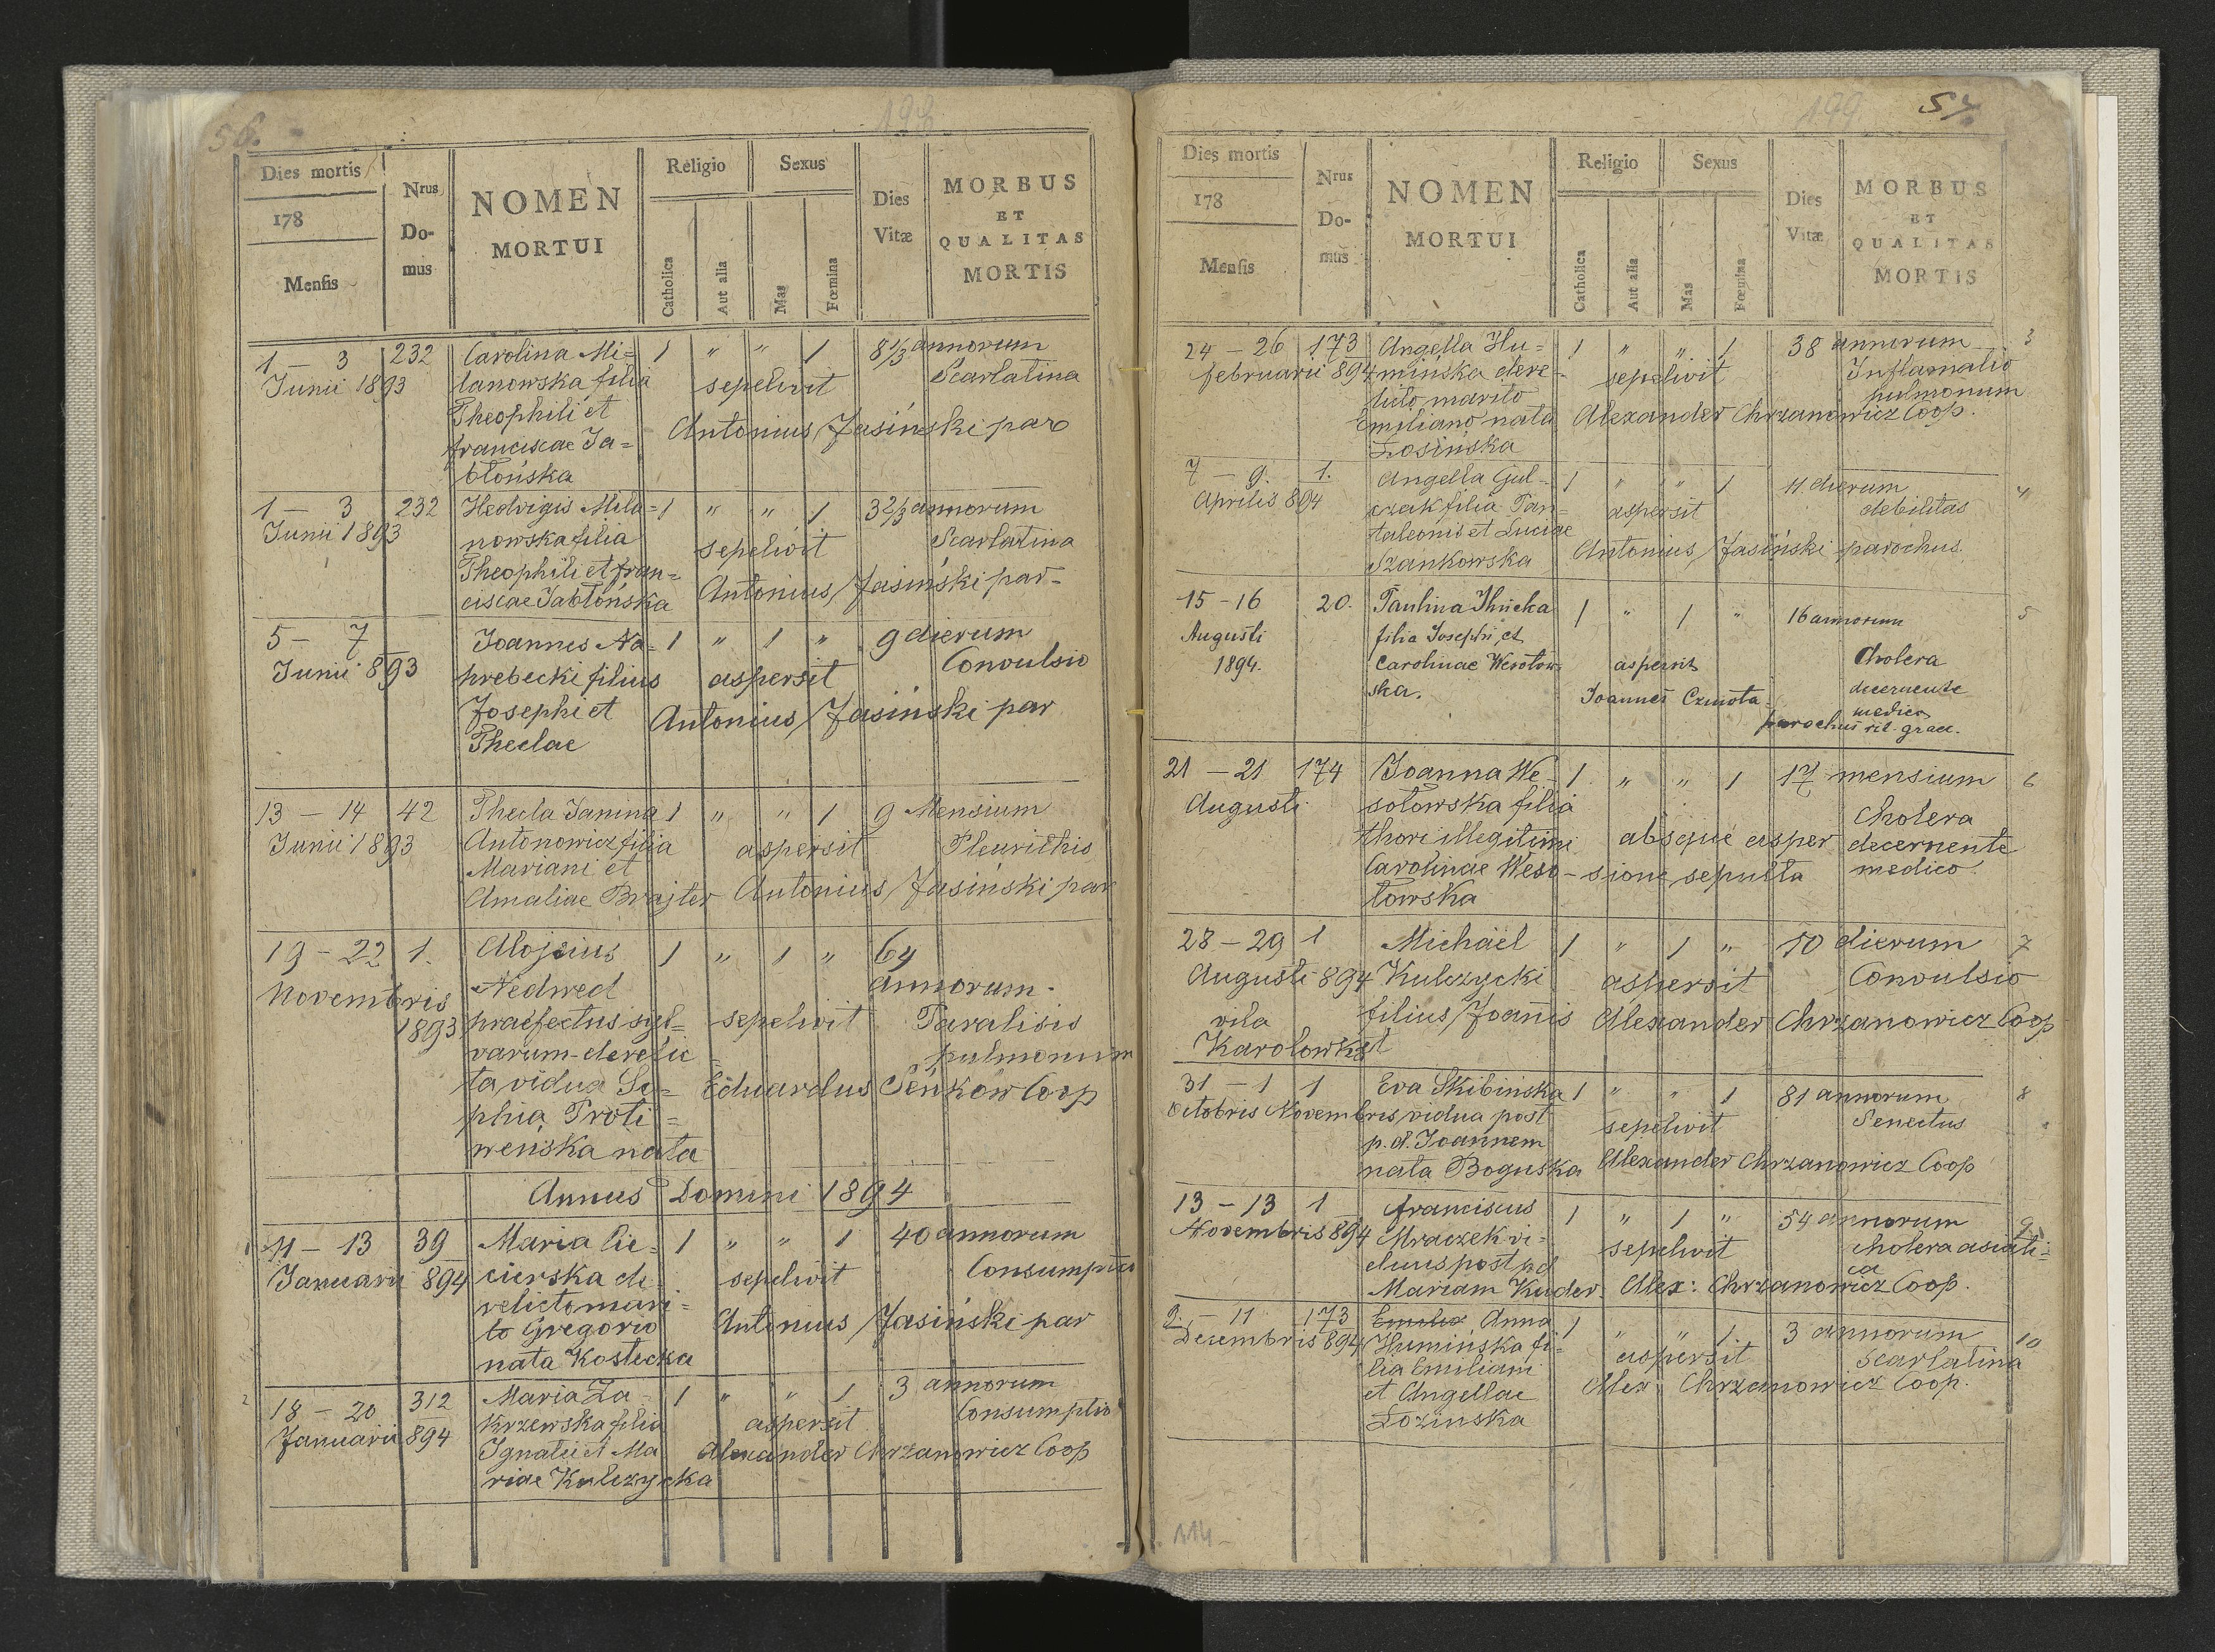 56.
198
Dies mortis
178
Mensis
Nrus
Do-
mus
NOMEN
MORTUI
Religio
Catholica
Aut alia
Sexus
Mas
Fœmina
Dies
Vitæ
MORBUS
ET
QUALITAS
MORTIS
1 — 3 232 Carolina Mi= 1 " " 1 8 1/3 annorum
Junii 1893 lanowska filia sepelivit Scarlatina
Theophili et
franciscae Ja= Antonius Jasiński par
błońska
1 — 3 232 Hedvigis Mila= 1 " " 1 3 2/3 annorum
Junii 1893 nowska filia sepelivit Scarlatina
Theophili et fran=
ciscae Jabłońska Antonius Jasiński par-
5 — 7 Joannes Na= 1 " 1 " 9 dierum
Junii 893 hrebecki filius aspersit Convulsio
Josephi et Antonius Jasiński par
Theclae
13 — 14 42 Thecla Janina 1 " " 1 9 Mensium
Junii 1893 Antonowicz filia aspersit Pleurithis
Mariani et
Amaliae Brajter Antonius Jasiński par
19 — 22 1. Alojsius 1 " 1 " 64
Novembris Nedwed annorum.
1893 praefectus syl= sepelivit Paralisis
varum-derelic= pulmonum
ta vidua So= Eduardus Seńkow Coop
phia Proti=
weńska nata
Annus Domini 1894
1 11 — 13 39 Maria Cie= 1 " " 1 40 annorum
Januarii 894 cierska de sepelivit Consumptio
relicto mari=
to Gregorio Antonius Jasiński par
nata Kostecka
2 18 — 20 312 Maria Za= 1 " " 1 3 annorum
Januarii 894 krzewska filia aspersit Consumptio
Ignatii et Ma Alexander Chrzanowicz Coop
riae Kulczycka
199
57.
Dies mortis
178
Mensis
Nrus
Do-
mus
NOMEN
MORTUI
Religio
Catholica
Aut alia
Sexus
Mas
Fœmina
Dies
Vitæ
MORBUS
ET
QUALITAS
MORTIS
24 — 26 173 Angella Hu= 1 " " 1 38 annorum 3
februarii 894 mińska dere= sepelivit Inflamatio
licto marito pulmonum
Emiliano nata Alexander Chrzanowicz Coop.
Łosińska
7 — 9. 1. Angella Gul= 1 " " 1 11. dierum 4
Aprilis 894 czak filia Pan= aspersit debilitas
taleonis et Luciae
Szankowska Antonius Jasiński parochus.
15 - 16 20. Paulina Ilnicka 1 " 1 " 16 annorum 5
Augusti filia Josephi et
1894. Carolinae Wesołow= aspersit Cholera
ska. Joannes Czmoła decernente
medico
parochus rit. graec.
21 — 21 174 Joanna We= 1 " " 1 17 mensium 6
Augusti sołowska filia Cholera
thori illegitimi absque asper decernente
Carolinae Weso- sione sepulta medico
łowska
28 — 29 1 Michaël 1 " 1 " 10 dierum 7
Augusti 894 Kulczycki aspersit Convulsio
vila filius Joanis Alexander Chrzanowicz Coop
Karolowka et
31 — 1 1 Eva Skibińska 1 " " 1 81 annorum 8
Octobris Novembris vidua post sepelivit Senectus
p. d. Joannem
nata Boguska Alexander Chrzanowicz Coop
13 — 13 1 franciscus 1 " 1 " 54 annorum 9
Novembris 894 Mraczek vi= sepelivit cholera asiati=
duus post pd ca
Mariam Kuder. Alex: Chrzanowicz Coop.
9. — 11 173 Emilia Anna 1 " " 1. 3 annorum 10
Decembris 894 Humińska fi= aspersit scarlatina
lia Emiliani
et Angellae Alex. Chrzanowicz Coop.
Łozinska
114